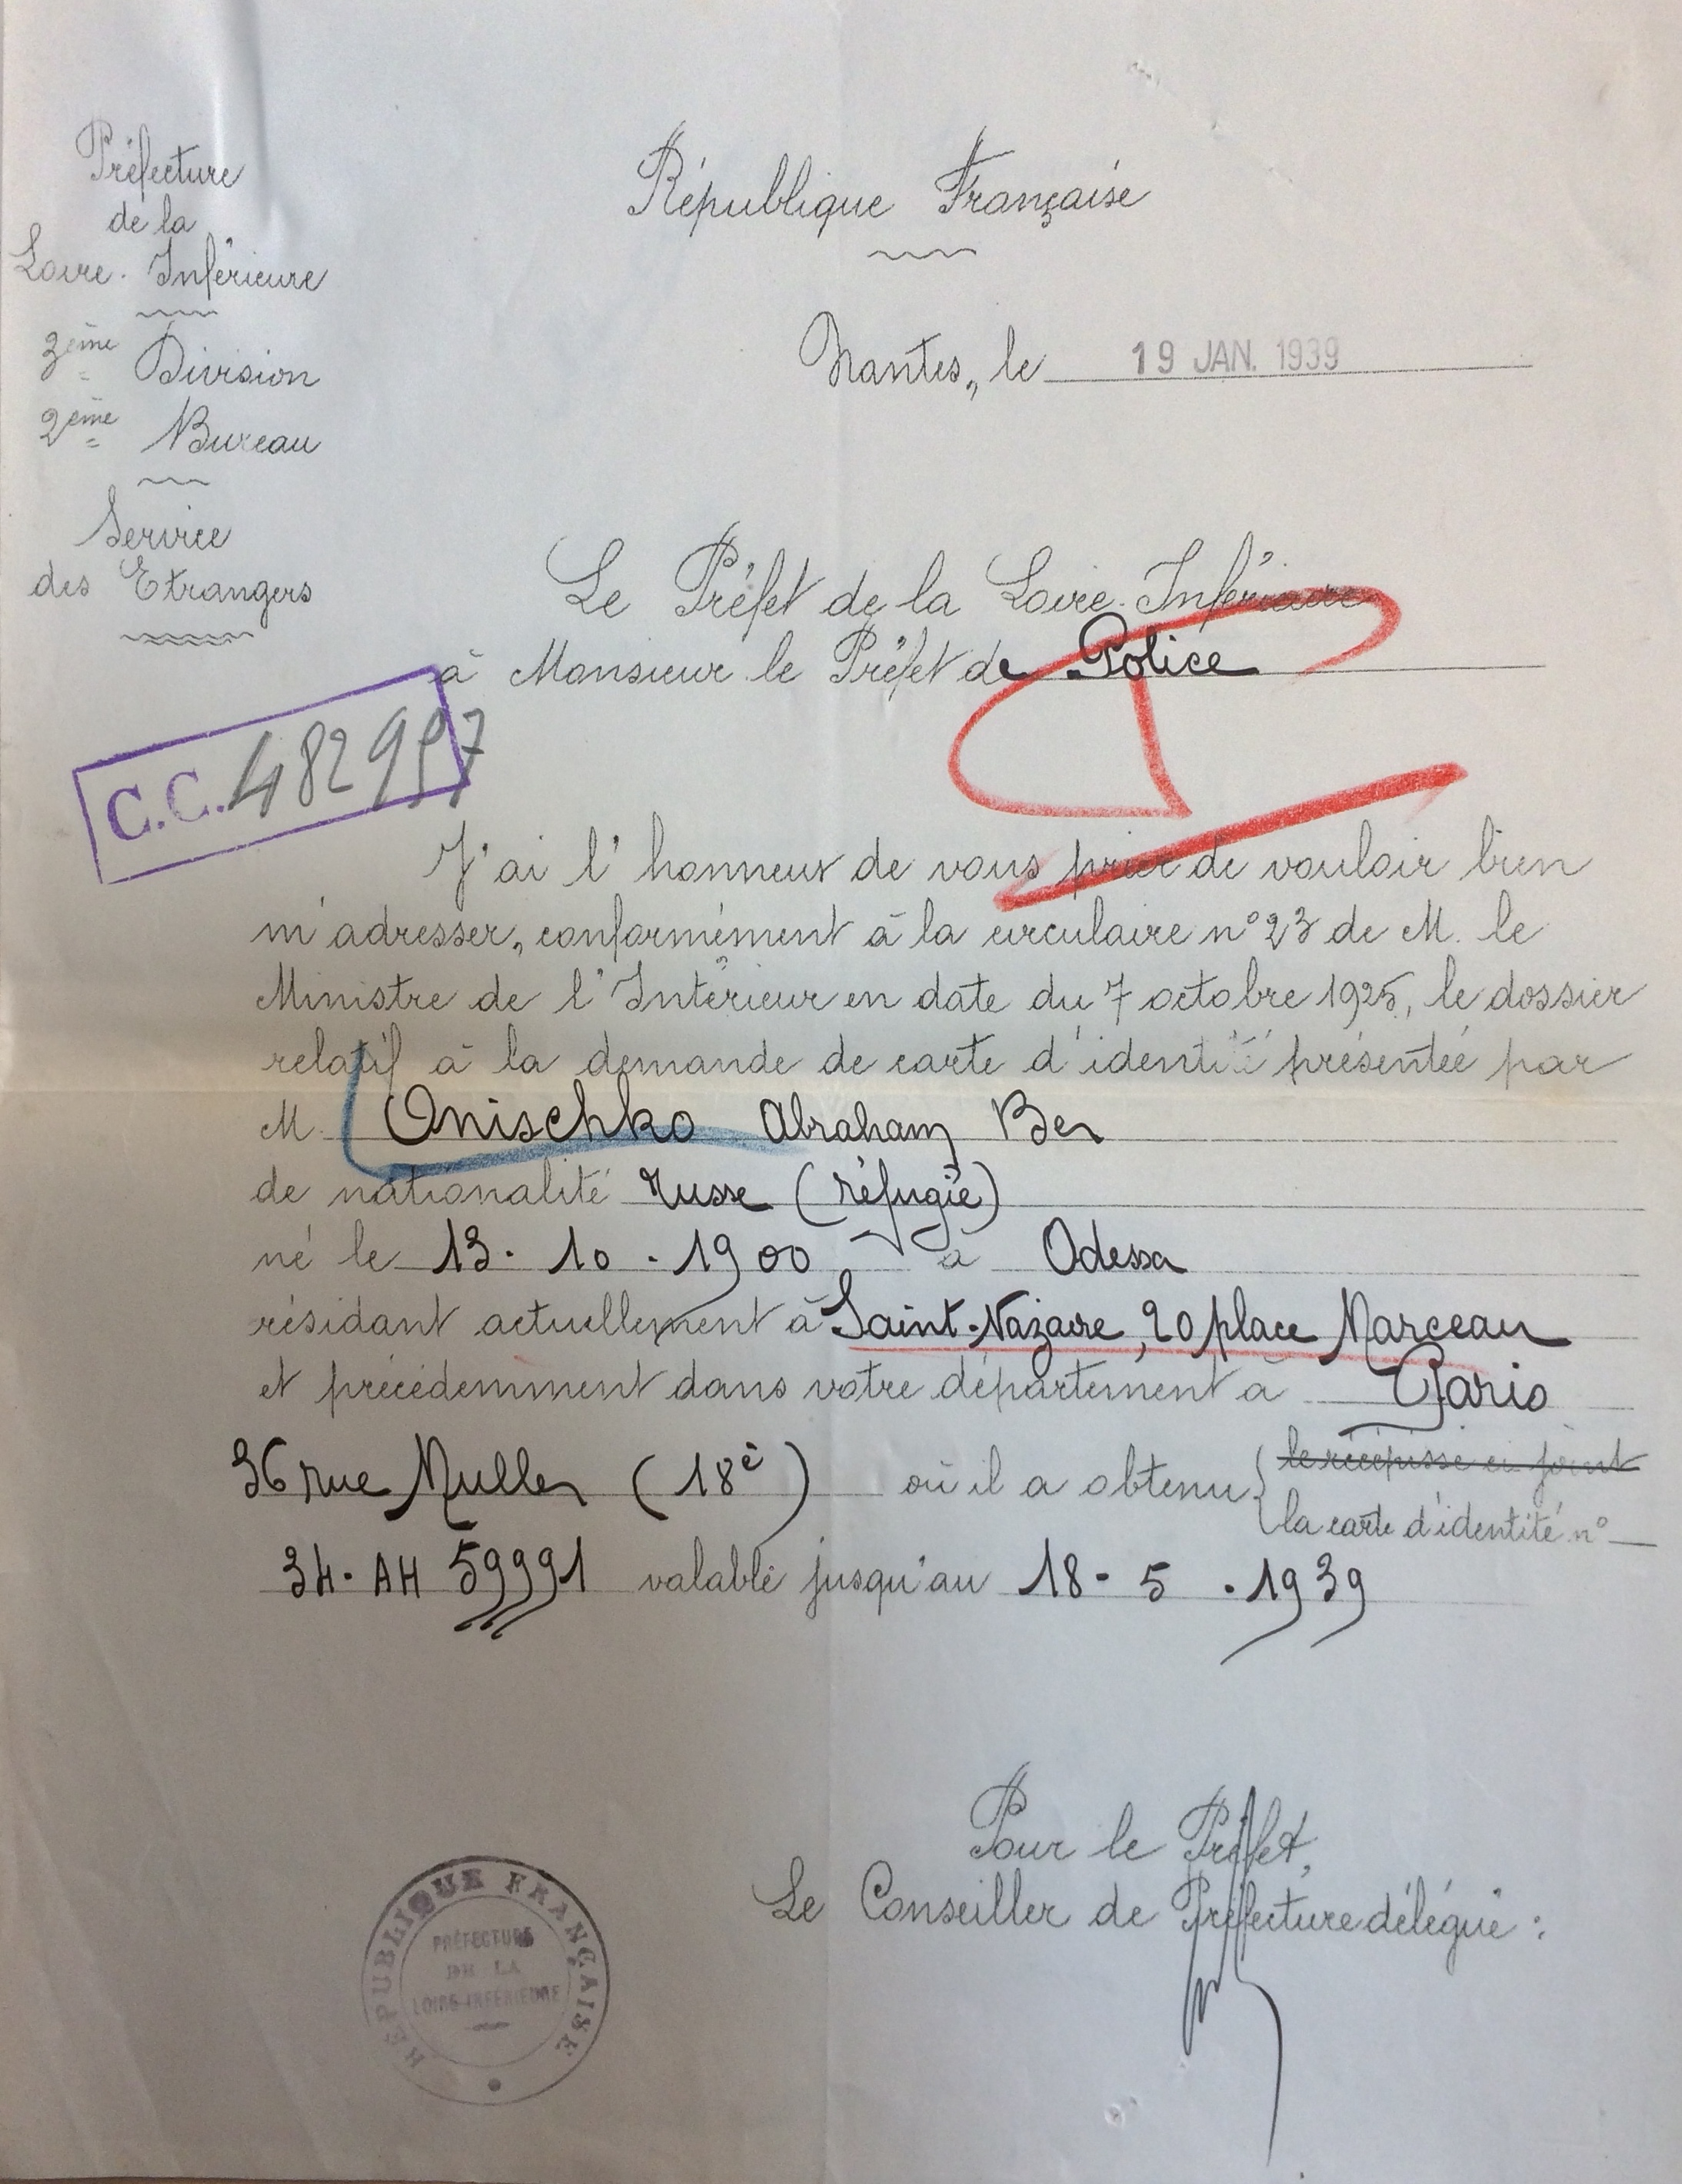 Préfecture
de la
Loire-Inférieure
3ème Division
2ème Bureau
Service
des Etrangers
République Française
Nantes, le 19 JAN. 1939
Le Préfet de la Loire-Inférieure
à Monsieur le Préfet de Police
C.C. 482997
J'ai l'honneur de vous prier de vouloir bien
m'adresser, conformément à la circulaire n° 23 de M. le
Ministre de l'Intérieur en date du 7 octobre 1925, le dossier
relatif à la demande de carte d'identité présentée par
M. Onischko Abraham Ber
de nationalité russe (réfugié)
né le 13-10-1900 à Odessa
résidant actuellement à Saint-Nazaire, 20 place Marceau
et précédemment dans votre département à Paris
36 rue Muller (18è) où il a obtenu { le récépissé ci joint
la carte d'identité n°
34-AH 59991 valable jusqu'au 18-5-1939
Pour le Préfet,
Le Conseiller de Préfecture délégué :
RÉPUBLIQUE FRANÇAISE
PRÉFECTURE
DE LA
LOIRE-INFÉRIEURE